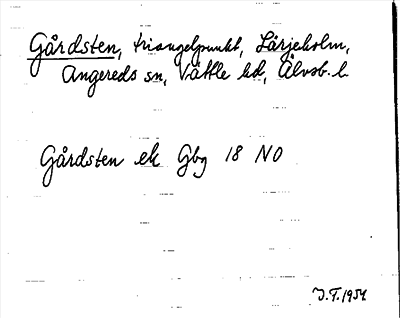 Gårdsten, triangelpunkt, Lärjeholm,
Angereds sn, Vättle hd, Älvsb. l.
Gårdsten ek Gbg 18 NO
J.F. 1954